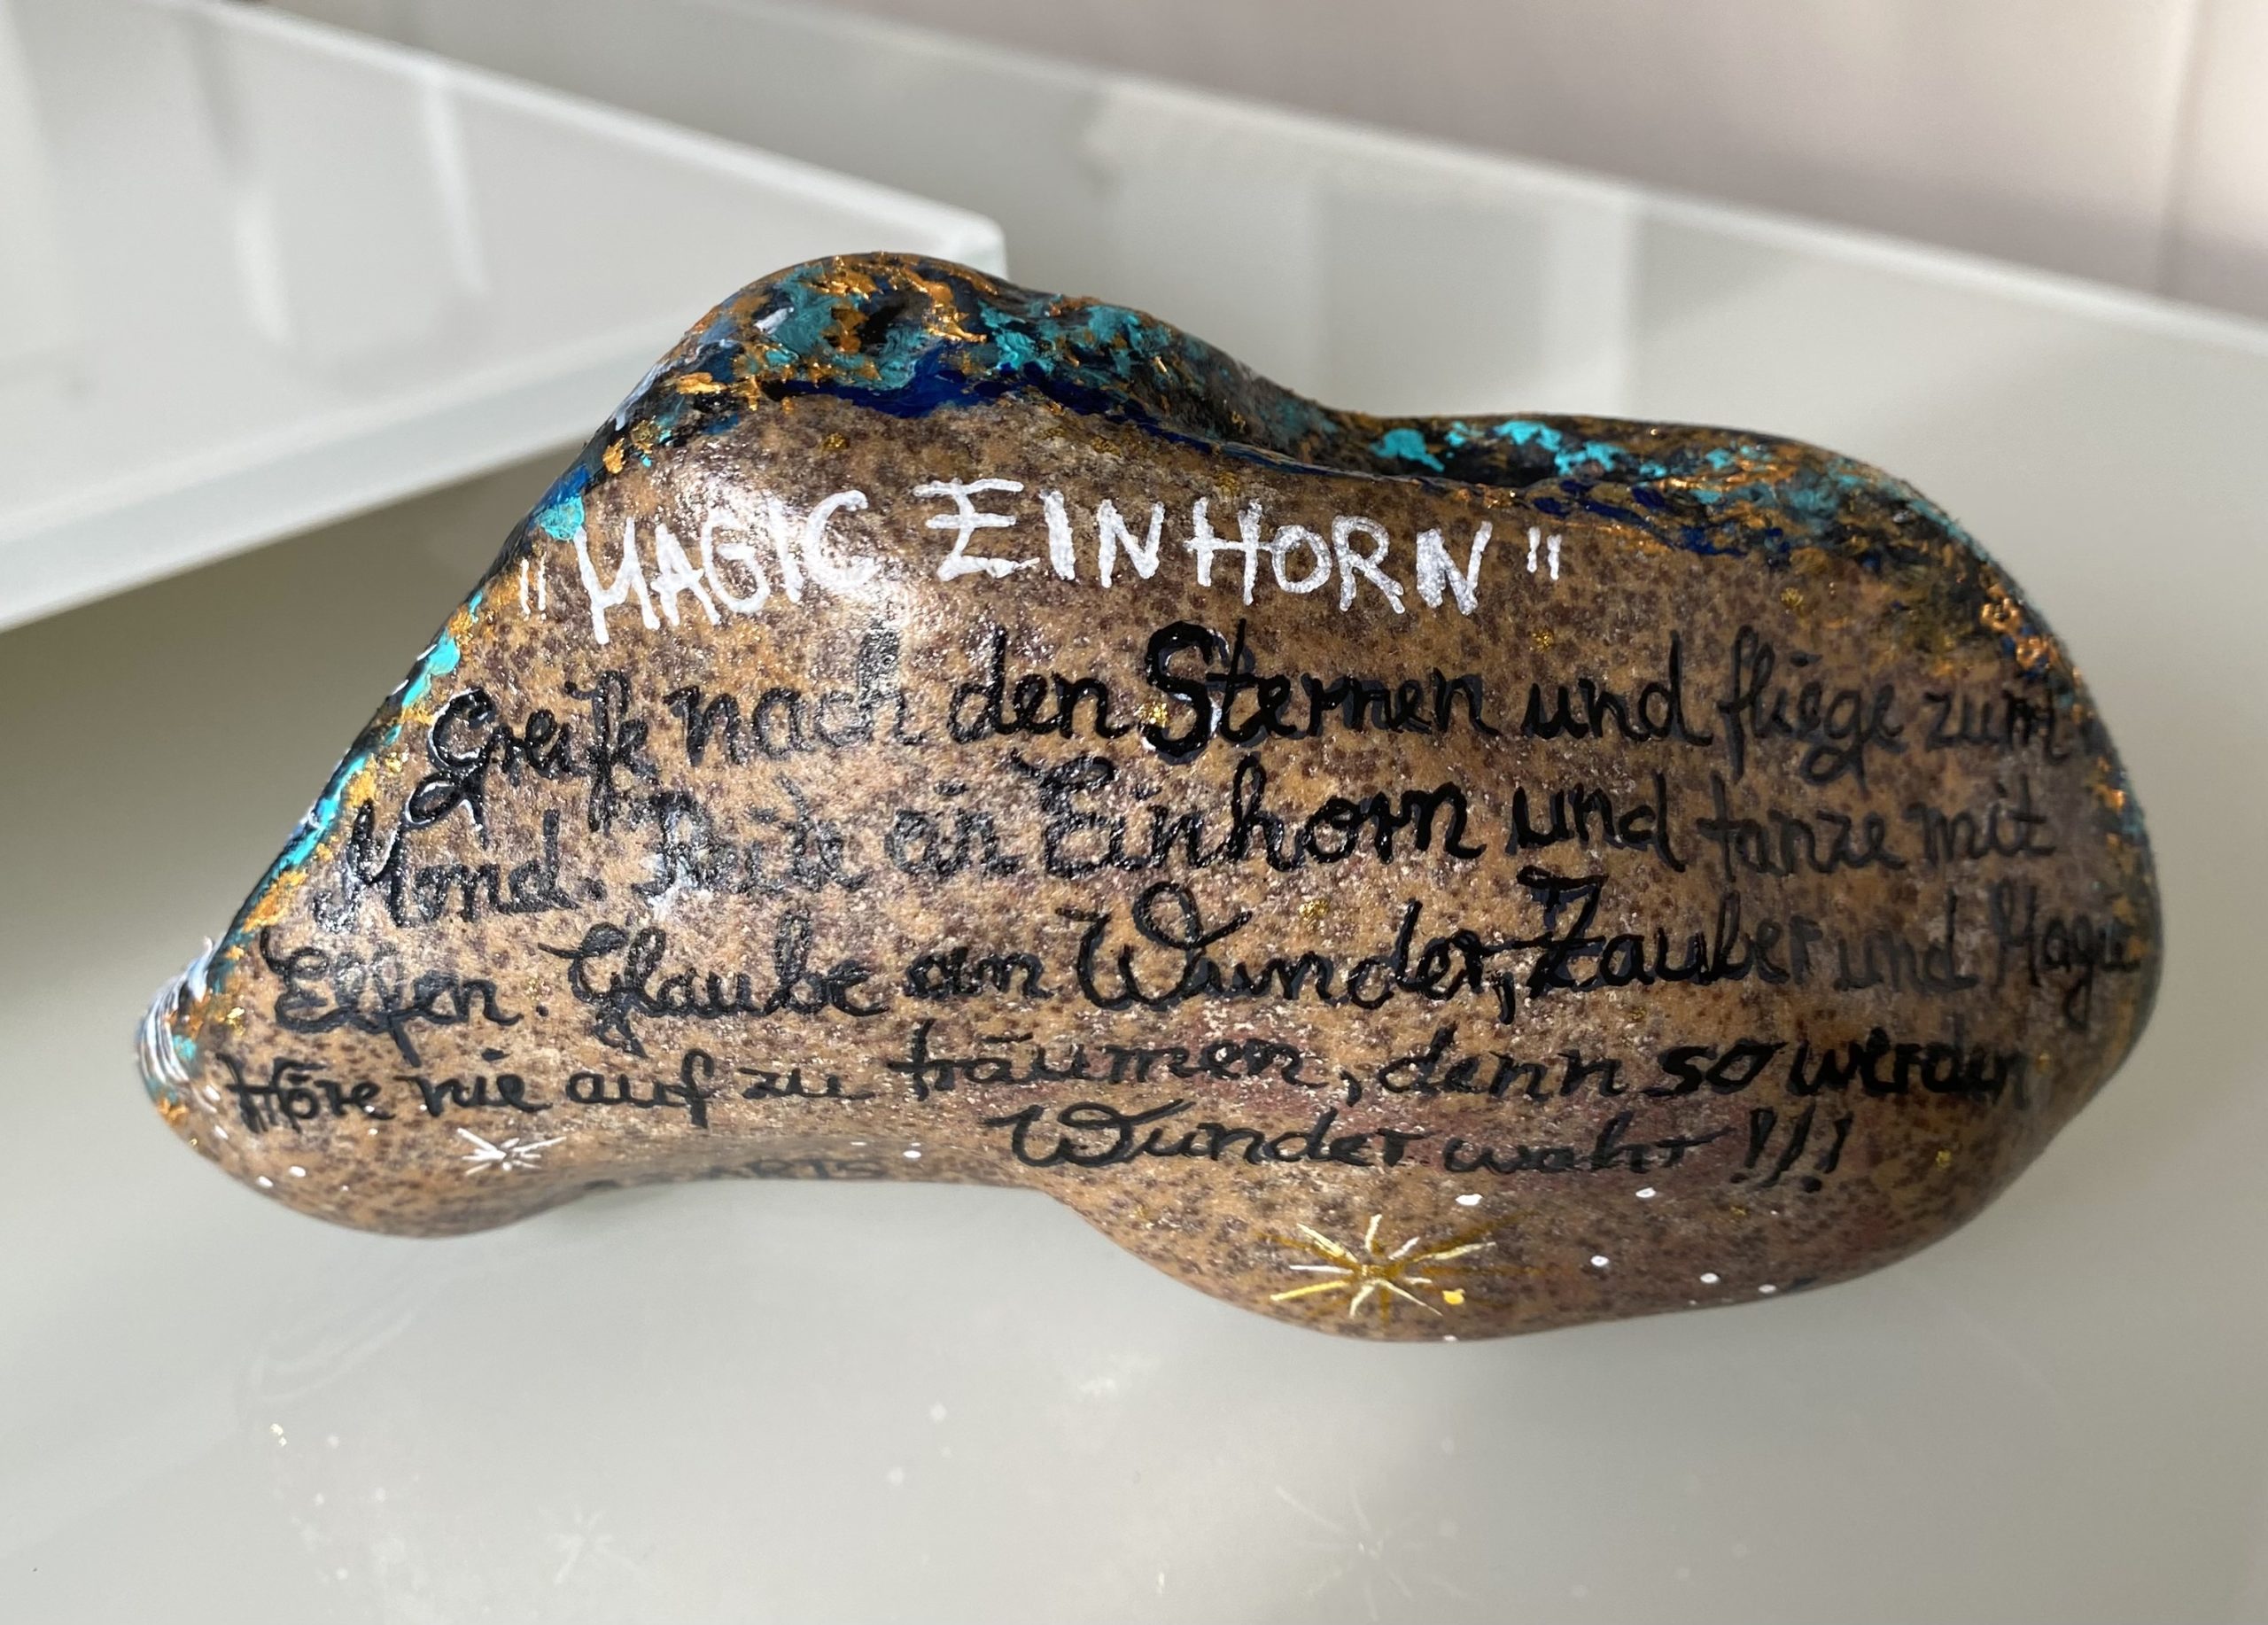 "MAGIC EINHORN"
Greife nach den Sternen und fliege zum
Mond. Reite ein Einhorn und tanze mit
Elfen. Glaube an Wunder, Zauber und Magie
Höre nie auf zu träumen, denn so werden
Wunder wahr!!!
ARTS